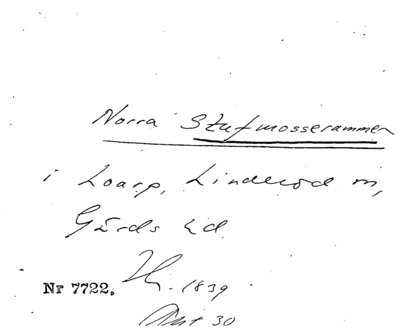 Norra Stufmosserammen
i Loarp, Linderöd sn,
Gärds hd
Nr 7722. Th. 1839
Akt 30